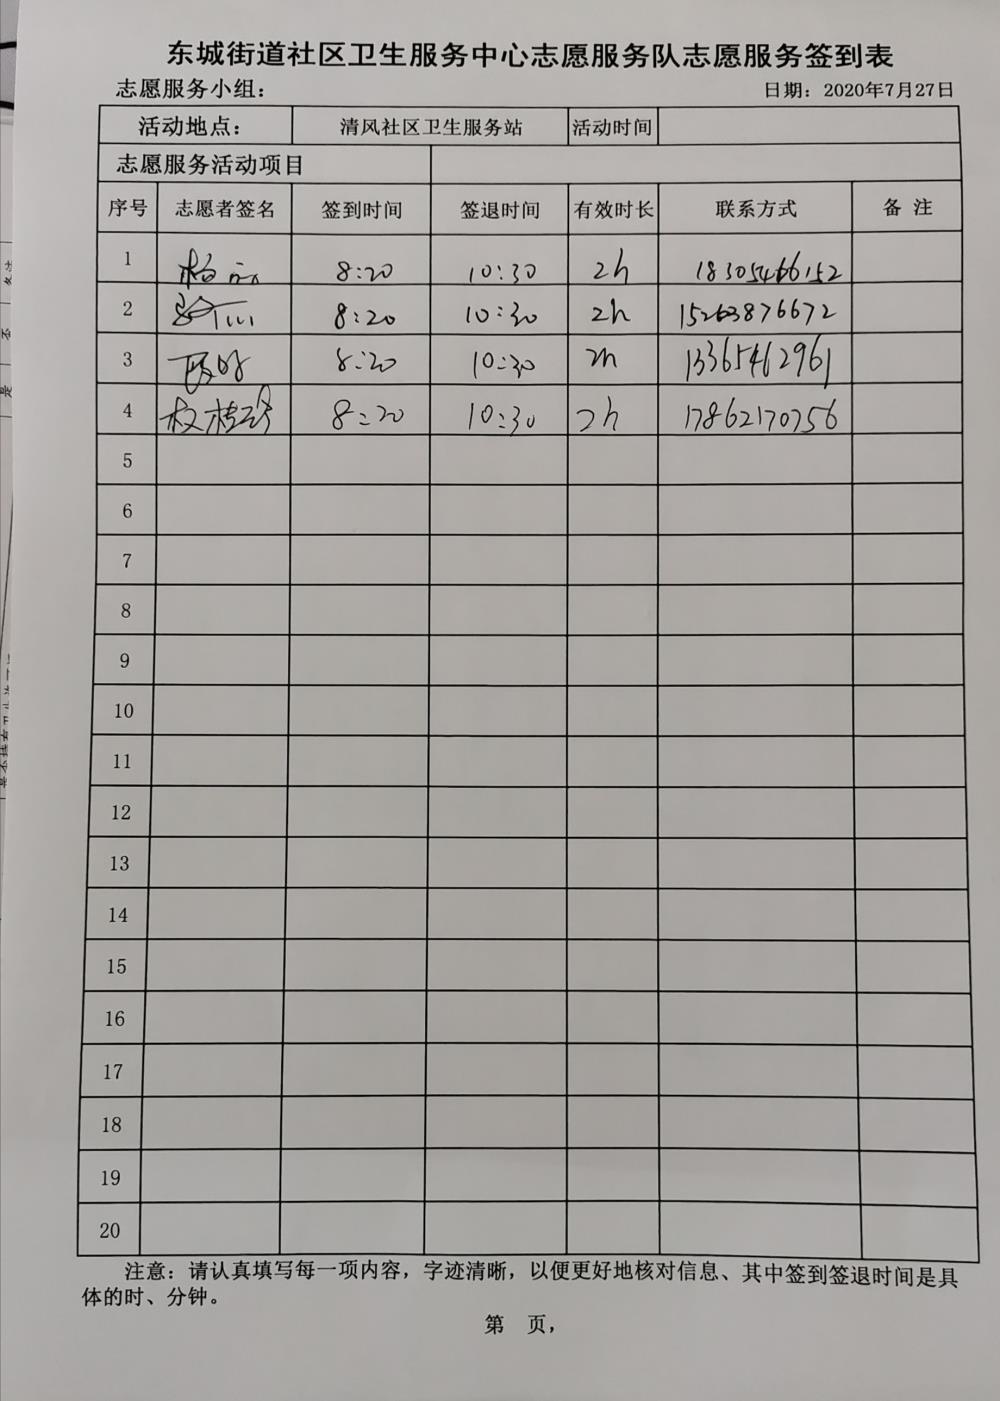 东城街道社区卫生服务中心志愿服务队志愿服务签到表
志愿服务小组： 日期：2020年7月27日
活动地点： 清风社区卫生服务站 活动时间
志愿服务活动项目
序号 志愿者签名 签到时间 签退时间 有效时长 联系方式 备 注
1 8:20 10:30 2h 18305466152
2 8:20 10:30 2h 15263876672
3 8:20 10:30 2h 13365462961
4 8:20 10:30 2h 17862170756
5
6
7
8
9
10
11
12
13
14
15
16
17
18
19
20
注意：请认真填写每一项内容，字迹清晰，以便更好地核对信息、其中签到签退时间是具
体的时、分钟。
第 页，